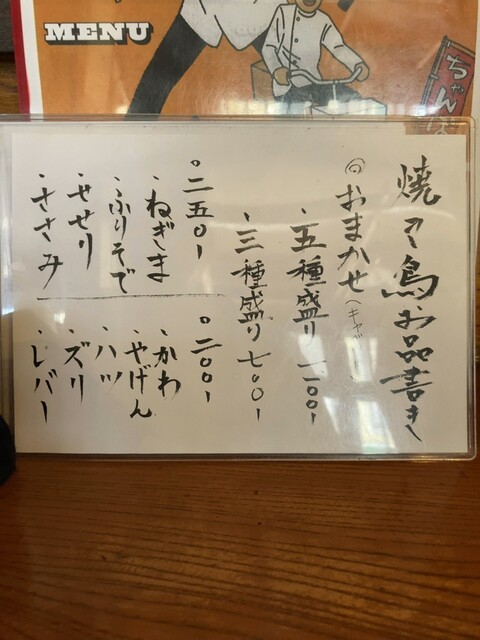 MENU
ちゃんぽ
焼き鳥お品書き
◎おまかせ(キャベ
・五種盛り 一一〇〇-
・三種盛り 七〇〇-
○二五〇-
・ねぎま
・ふりそで
・せせり
・ささみ
○二〇〇-
・かわ
・やげん
・ハツ
・ズリ
・レバー